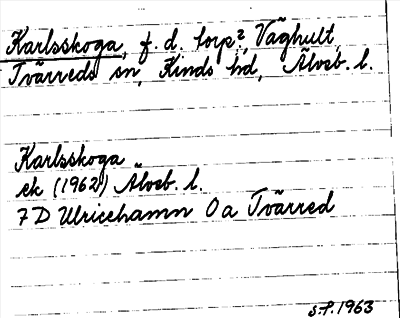 Karlsskoga, f. d. torp², Väghult,
Tvärreds sn, Kinds hd, Älvsb. l.
Karlsskoga
ek (1962) Älvsb. l.
7 D Ulricehamn 0 a Tvärred
S.P. 1963